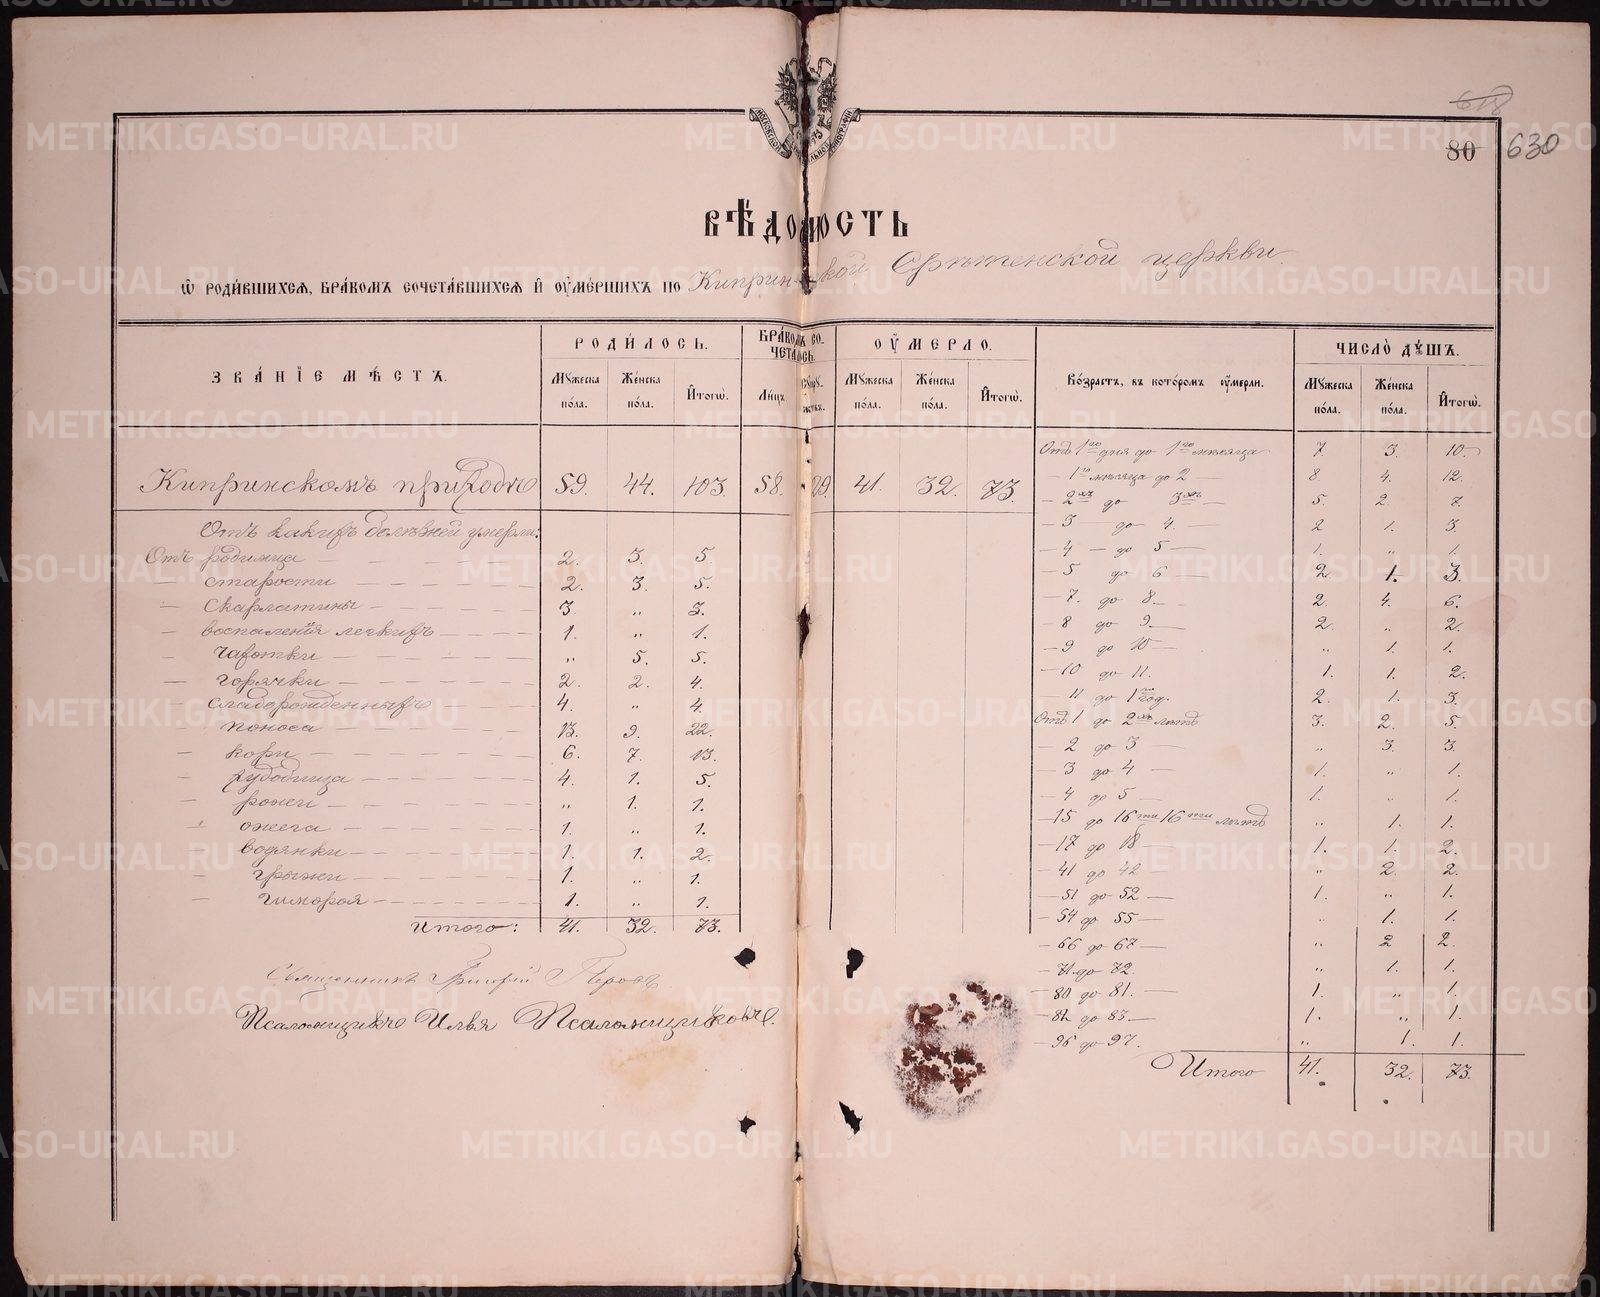 618
80 630
ВѢДОМОСТЬ
Ѡ РОДИВШИХСЯ, БРАКОМЪ СОЧЕТАВШИХСЯ И ОУМЕРШИХЪ ПО Кипринской Срѣтенской церкви.
ЗВАНІЕ МѢСТЪ. РОДИЛОСЬ. БРАКОМЪ СОЧЕТАЛОСЬ. ОУМЕРЛО. Возрастъ, въ которомъ оумерли. ЧИСЛО ДУШЪ.
Мужеска пола. Женска пола. Итогѡ. Лицъ. Мужеска пола. Женска пола. Итогѡ. Мужеска пола. Женска пола. Итогѡ.
Кипринскомъ приходѣ 59. 44. 103. 58. 29. 41. 32. 73.
Отъ какихъ болѣзней умерли:
Отъ родимца — 2. 3. 5.
— старости — 2. 3. 5.
— Скарлатины — 3. „ 3.
— воспаленія легкихъ — 1. „ 1.
— чахотки — „ 5. 5.
— горячки — 2. 2. 4.
— слаборожденныхъ 4. „ 4.
— поноса — 13. 9. 22.
— кори — 6. 7. 13.
— худобища — 4. 1. 5.
— рожи — „ 1. 1.
— ожега — 1. „ 1.
— водянки — 1. 1. 2.
— грыжи — 1. „ 1.
— гимороя — 1. „ 1.
Итого: 41. 32. 73.
Священникъ Григорій
Псаломщикъ Илья Псаломщиковъ.
Отъ 1го дня до 1го мѣсяца 7 3. 10.
— 1го мѣсяца до 2 — 8 4. 12.
— 2хъ до 3хъ — 5. 2. 7.
— 3 до 4. — 2 1. 3.
— 4 — до 5 — 1. „ 1.
— 5 до 6 — 2. 1. 3.
— 7. до 8. — 2. 4. 6.
— 8 до 9. — 2. „ 2.
— 9 до 10 — „ 1. 1.
— 10 до 11. 1. 1. 2.
— 11 до 1го год. 2. 1. 3.
Отъ 1 до 2хъ лѣтъ 3. 2. 5.
— 2 до 3 — „ 3. 3.
— 3 до 4 — 1. „ 1.
— 4 до 5 — 1. „ 1.
— 15 до 16ти лѣтъ „ 1. 1.
— 17 до 18 — 1. 1. 2.
— 41 до 42 — „ 2. 2.
— 51 до 52 — 1. „ 1.
— 54 до 55 — „ 1. 1.
— 66 до 67 — „ 2 2.
— 71 до 72. „ 1. 1.
— 80 до 81. — 1. „ 1.
— 82 до 83. — 1. „ 1.
— 96 до 97. „ 1. 1.
Итого 41. 32. 73.
METRIKI.GASO-URAL.RU